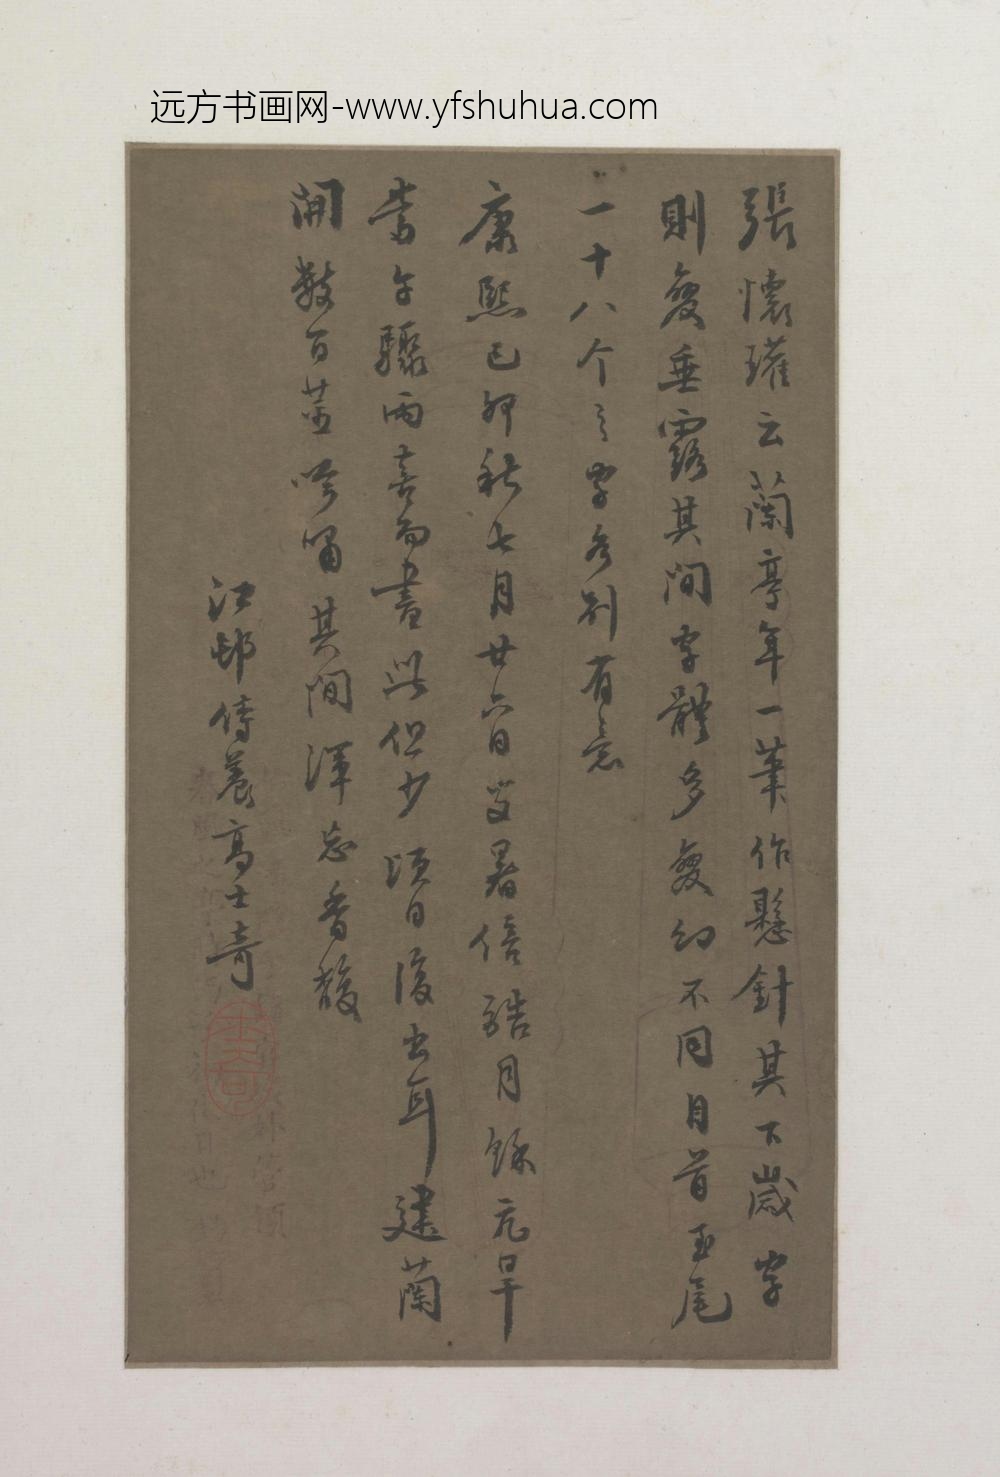 远方书画网-www.yfshuhua.com
張懷瓘云蘭亭年一筆作懸針其下歲字
則變垂露其間字體多變幻不同自首至尾
一十八个之字各別有意
康熙己卯秋七月廿六日毒暑倍酷月餘亢旱
當午驟雨喜而書此但少頃日復出耳建蘭
開數百莖吟嘯其間渾忘香馥
江邨侍養高士奇
士奇